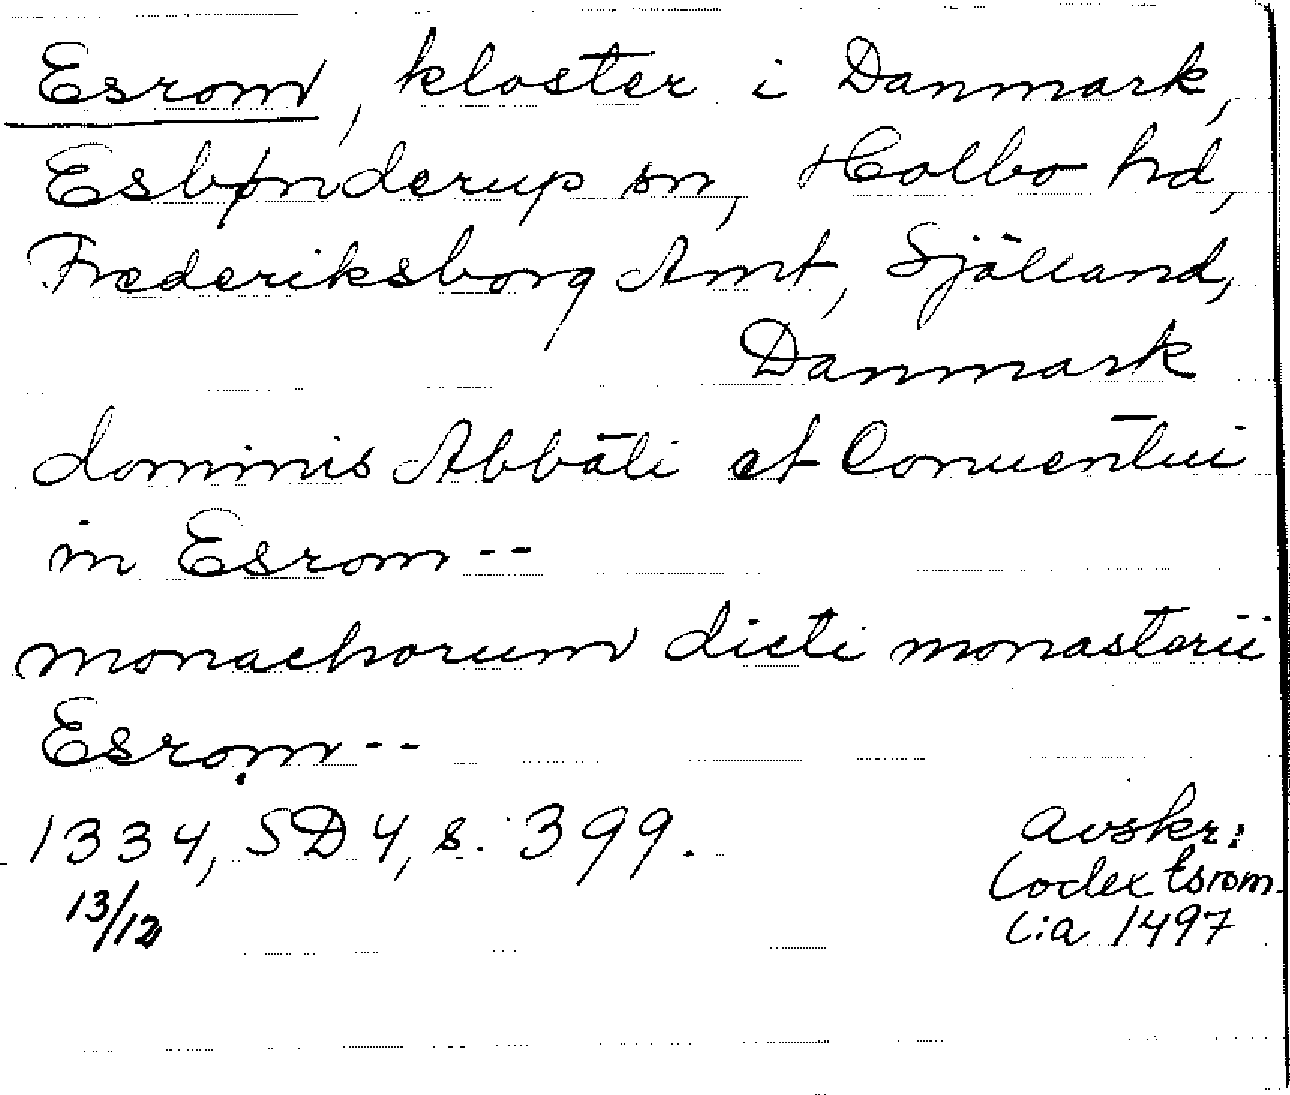 Esrom, kloster i Danmark,
Esbønderup sn, Holbo hd,
Frederiksborg Amt, Själland,
Danmark
dominis Abbāti et Conuentui
in Esrom --
monachorum dicti monasterii
Esrom --
1334, SD 4, s. 399.
13/12
Avskr:
Codex Esrom.
c:a 1497